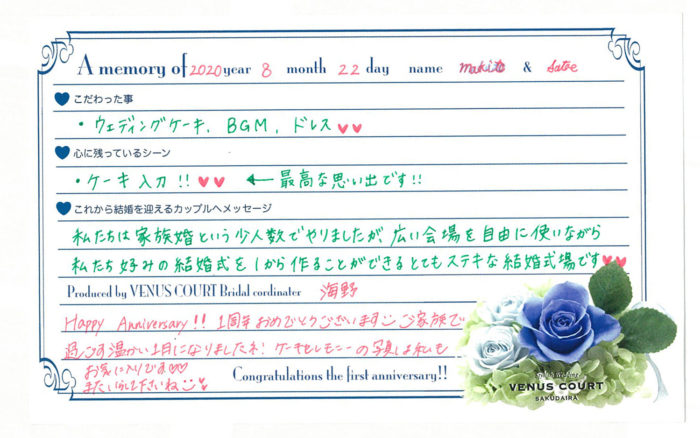 A memory of 2020 year 8 month 22 day name makito & satoe
こだわった事
・ウェディングケーキ、BGM、ドレス♥♥
心に残っているシーン
・ケーキ入刀!!♥♥ ← 最高な思い出です!!
これから結婚を迎えるカップルへメッセージ
私たちは家族婚という少人数でやりましたが、広い会場を自由に使いながら
私たち好みの結婚式を1から作ることができるとてもステキな結婚式場です♥♥
Produced by VENUS COURT Bridal cordinater 海野
Happy Anniversary!! 1周年おめでとうございます ご家族で
過ごす温かい1日になりましたネ! ケーキセレモニーの写真は私も
お気に入りです♡♡
またいらして下さいね
Congratulations the first anniversary!!
VENUS COURT
SAKUDAIRA